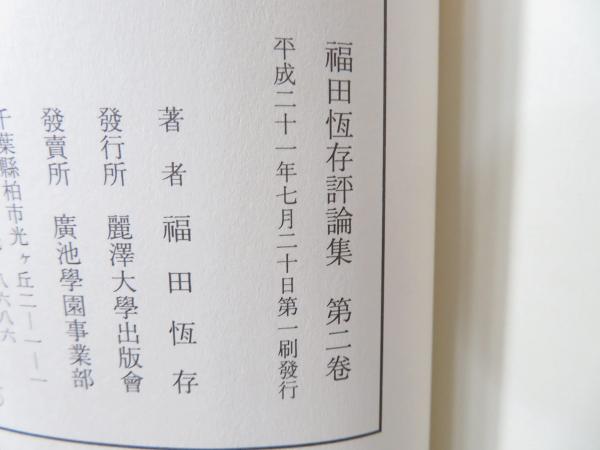 福田恆存評論集　第二卷
平成二十一年七月二十日第一刷發行
著者　福田恆存
發行所　麗澤大學出版會
發賣所　廣池學園事業部
千葉縣柏市光ヶ丘二―一―一
八六八六